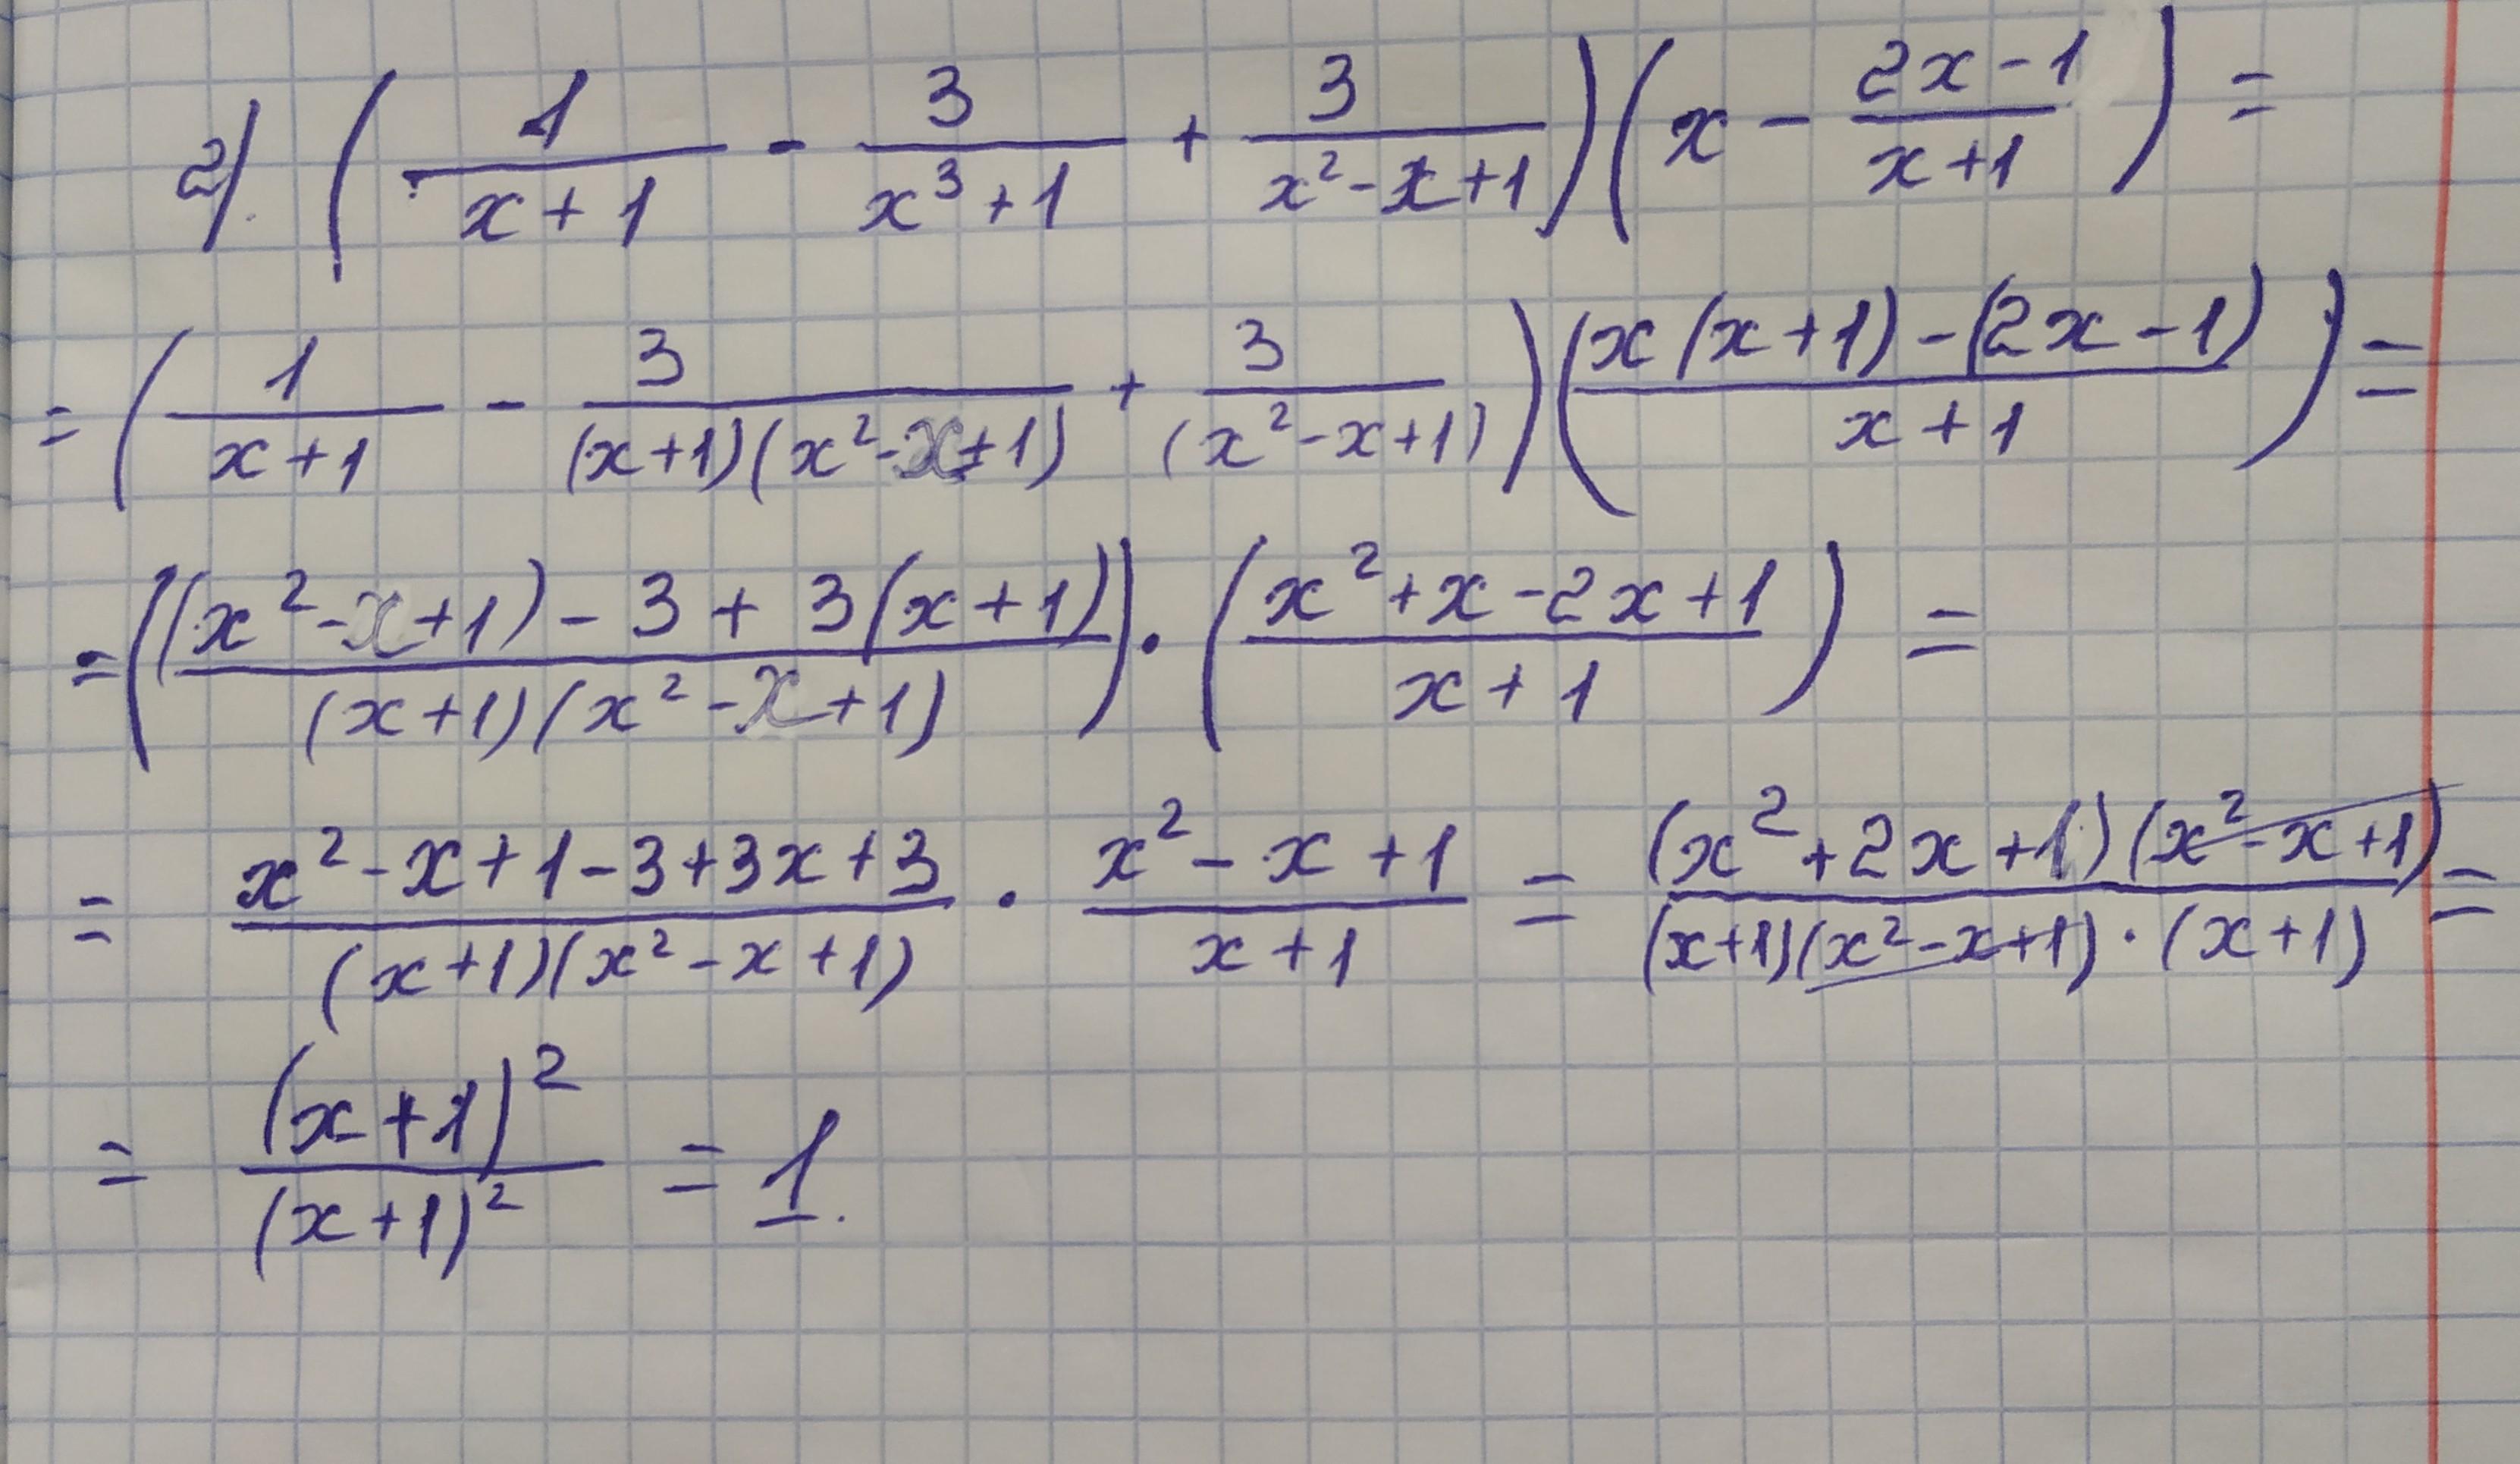 2). (1/(x+1) - 3/(x³+1) + 3/(x²-x+1))(x - (2x-1)/(x+1)) =
= (1/(x+1) - 3/((x+1)(x²-x+1)) + 3/(x²-x+1))((x(x+1)-(2x-1))/(x+1)) =
= (((x²-x+1)-3+3(x+1))/((x+1)(x²-x+1))) · ((x²+x-2x+1)/(x+1)) =
= (x²-x+1-3+3x+3)/((x+1)(x²-x+1)) · (x²-x+1)/(x+1) = ((x²+2x+1)(x²-x+1))/((x+1)(x²-x+1)·(x+1)) =
= (x+1)²/(x+1)² = 1.